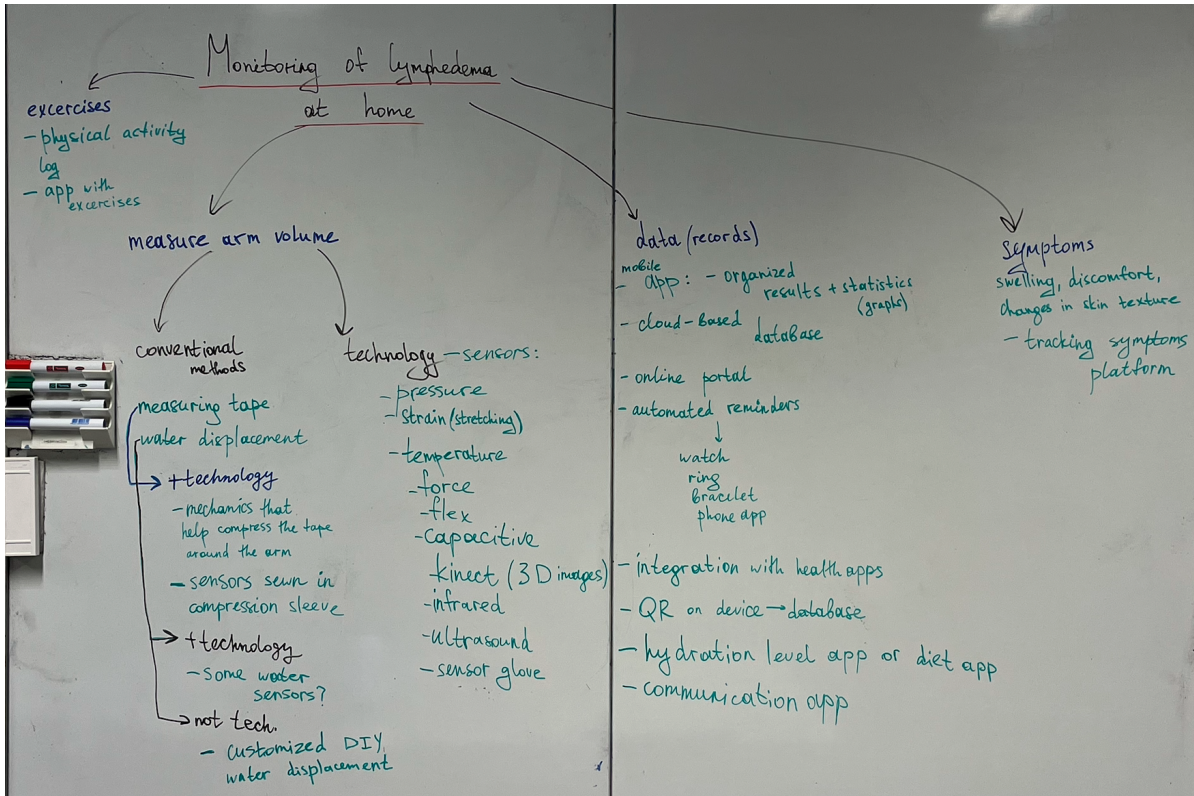 Monitoring of lymphedema
at home
excercises
- physical activity
log
- app with
excercises
measure arm volume
conventional
methods
measuring tape
water displacement
+technology
- mechanics that
help compress the tape
around the arm
- sensors sewn in
compression sleeve
+technology
- some water
sensors?
not tech.
- customized DIY
water displacement
technology - sensors:
- pressure
- strain (stretching)
- temperature
- force
- flex
- capacitive
kinect (3D images)
- infrared
- ultrasound
- sensor glove
data (records)
mobile
- app: - organized
results + statistics
(graphs)
- cloud-based
database
- online portal
- automated reminders
watch
ring
bracelet
phone app
- integration with health apps
- QR on device → database
- hydration level app or diet app
- communication app
symptoms
swelling, discomfort,
changes in skin texture
- tracking symptoms
platform